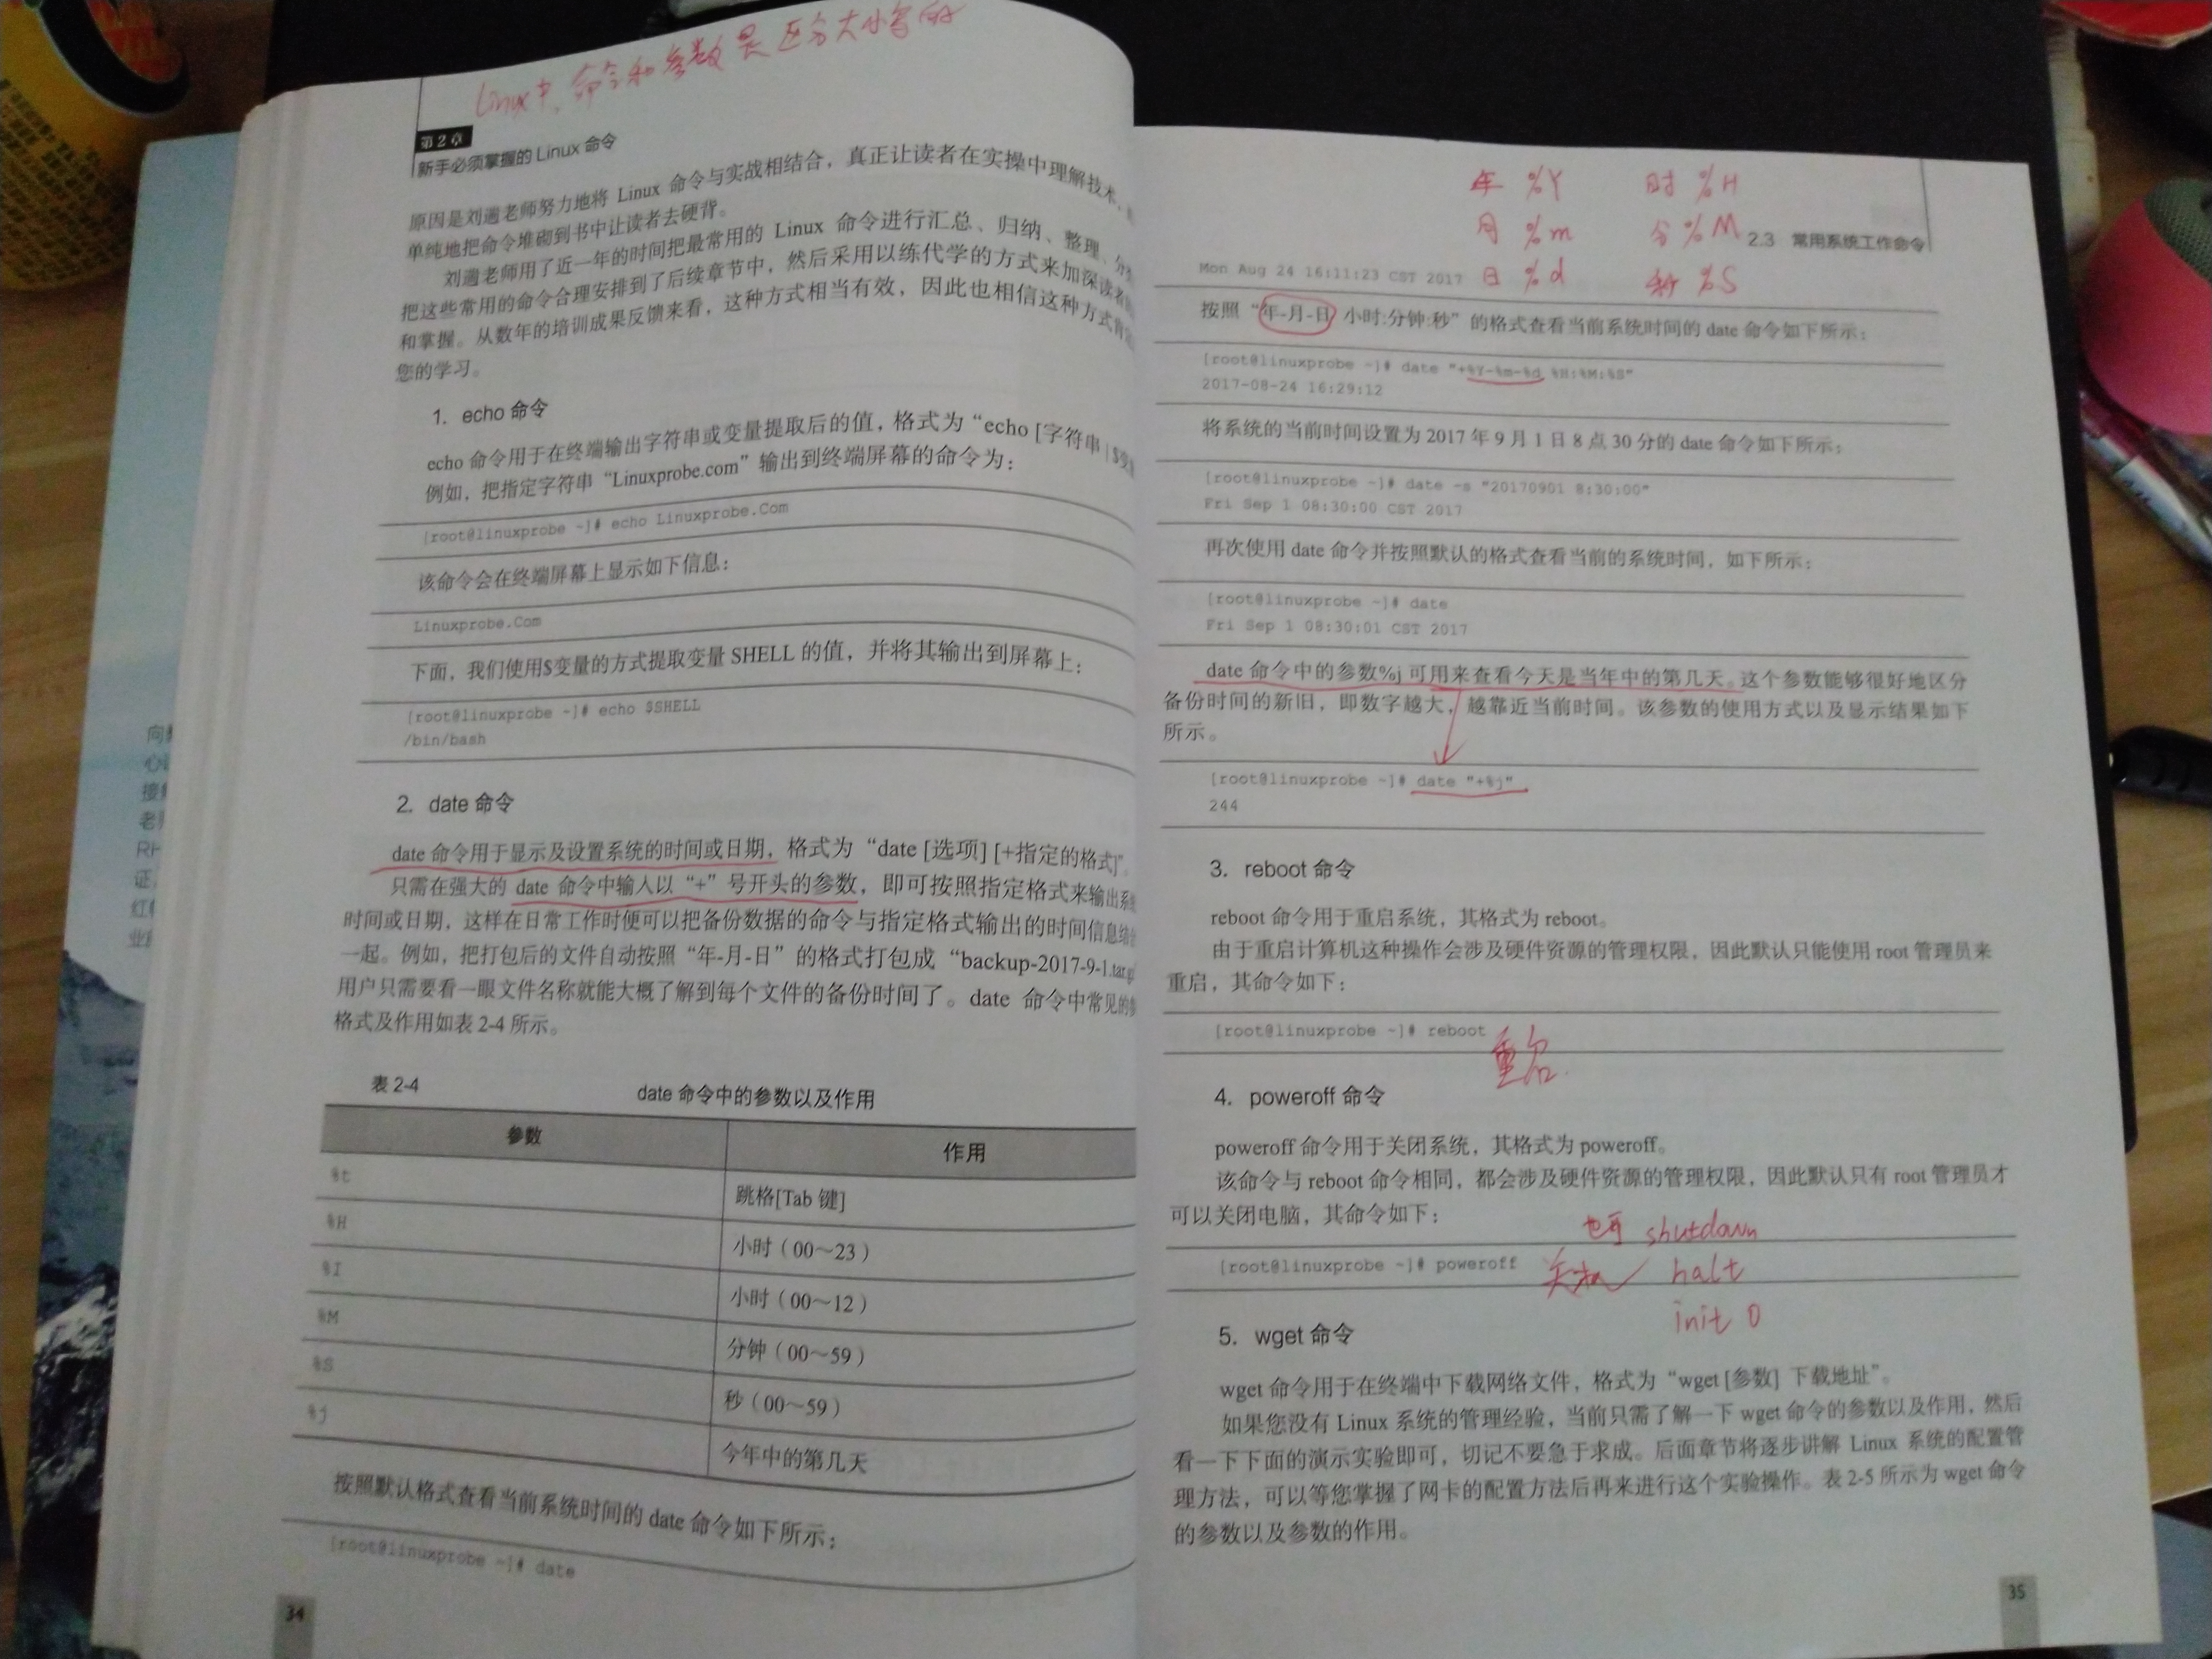 Linux中,命令和参数是区分大小写的
第2章
新手必须掌握的 Linux 命令
原因是刘遄老师努力地将 Linux 命令与实战相结合，真正让读者在实操中理解技术，
单纯地把命令堆砌到书中让读者去硬背。
刘遄老师用了近一年的时间把最常用的 Linux 命令进行汇总、归纳、整理、
把这些常用的命令合理安排到了后续章节中，然后采用以练代学的方式来加深读者
和掌握。从数年的培训成果反馈来看，这种方式相当有效，因此也相信这种方式
您的学习。
1. echo 命令
echo 命令用于在终端输出字符串或变量提取后的值，格式为“echo [字符串 | $变
例如，把指定字符串“Linuxprobe.com”输出到终端屏幕的命令为：
[root@linuxprobe ~]# echo Linuxprobe.Com
该命令会在终端屏幕上显示如下信息：
Linuxprobe.Com
下面，我们使用$变量的方式提取变量 SHELL 的值，并将其输出到屏幕上：
[root@linuxprobe ~]# echo $SHELL
/bin/bash
2. date 命令
date 命令用于显示及设置系统的时间或日期，格式为“date [选项] [+指定的格式]”。
只需在强大的 date 命令中输入以“+”号开头的参数，即可按照指定格式来输出系
时间或日期，这样在日常工作时便可以把备份数据的命令与指定格式输出的时间信息结
一起。例如，把打包后的文件自动按照“年-月-日”的格式打包成“backup-2017-9-1.tar.g
用户只需要看一眼文件名称就能大概了解到每个文件的备份时间了。date 命令中常见的
格式及作用如表 2-4 所示。
表 2-4 date 命令中的参数以及作用
参数 作用
%t 跳格[Tab 键]
%H 小时（00～23）
%I 小时（00～12）
%M 分钟（00～59）
%S 秒（00～59）
%j 今年中的第几天
按照默认格式查看当前系统时间的 date 命令如下所示：
[root@linuxprobe ~]# date
34
年 %Y 时 %H
月 %m 分 %M
日 %d 秒 %S
2.3 常用系统工作命令
Mon Aug 24 16:11:23 CST 2017
按照“年-月-日 小时:分钟:秒”的格式查看当前系统时间的 date 命令如下所示：
[root@linuxprobe ~]# date "+%Y-%m-%d %H:%M:%S"
2017-08-24 16:29:12
将系统的当前时间设置为 2017 年 9 月 1 日 8 点 30 分的 date 命令如下所示：
[root@linuxprobe ~]# date -s "20170901 8:30:00"
Fri Sep 1 08:30:00 CST 2017
再次使用 date 命令并按照默认的格式查看当前的系统时间，如下所示：
[root@linuxprobe ~]# date
Fri Sep 1 08:30:01 CST 2017
date 命令中的参数%j 可用来查看今天是当年中的第几天。这个参数能够很好地区分
备份时间的新旧，即数字越大，越靠近当前时间。该参数的使用方式以及显示结果如下
所示。
[root@linuxprobe ~]# date "+%j"
244
3. reboot 命令
reboot 命令用于重启系统，其格式为 reboot。
由于重启计算机这种操作会涉及硬件资源的管理权限，因此默认只能使用 root 管理员来
重启，其命令如下：
[root@linuxprobe ~]# reboot
重启
4. poweroff 命令
poweroff 命令用于关闭系统，其格式为 poweroff。
该命令与 reboot 命令相同，都会涉及硬件资源的管理权限，因此默认只有 root 管理员才
可以关闭电脑，其命令如下：
也可 shutdown
[root@linuxprobe ~]# poweroff 关机 halt
init 0
5. wget 命令
wget 命令用于在终端中下载网络文件，格式为“wget [参数] 下载地址”。
如果您没有 Linux 系统的管理经验，当前只需了解一下 wget 命令的参数以及作用，然后
看一下下面的演示实验即可，切记不要急于求成。后面章节将逐步讲解 Linux 系统的配置管
理方法，可以等您掌握了网卡的配置方法后再来进行这个实验操作。表 2-5 所示为 wget 命令
的参数以及参数的作用。
35